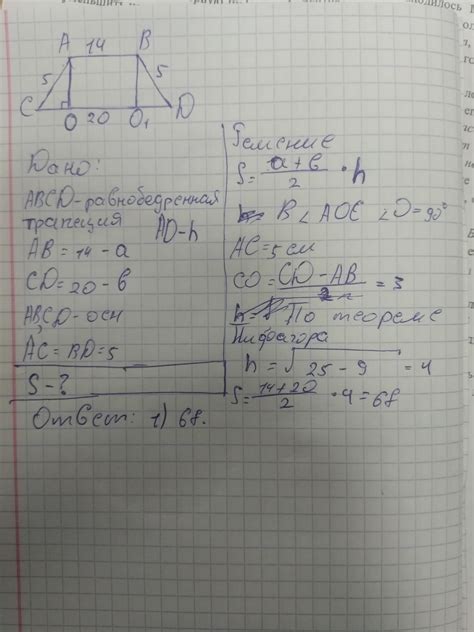 A 14 B
5 5
C O 20 O₁ D
Дано:
ABCD-равнобедренная
трапеция
AO-h
AB = 14 - a
CD = 20 - b
AB,CD-осн
AC = BD = 5
S - ?
Ответ: 1) 68.
Решение
S = (a + b)/2 · h
В ∠AOC ∠O = 90°
AC = 5 см
CO = (CD - AB)/2 = 3
По теореме
Пифагора
h = √25 - 9 = 4
S = (14 + 20)/2 · 4 = 68